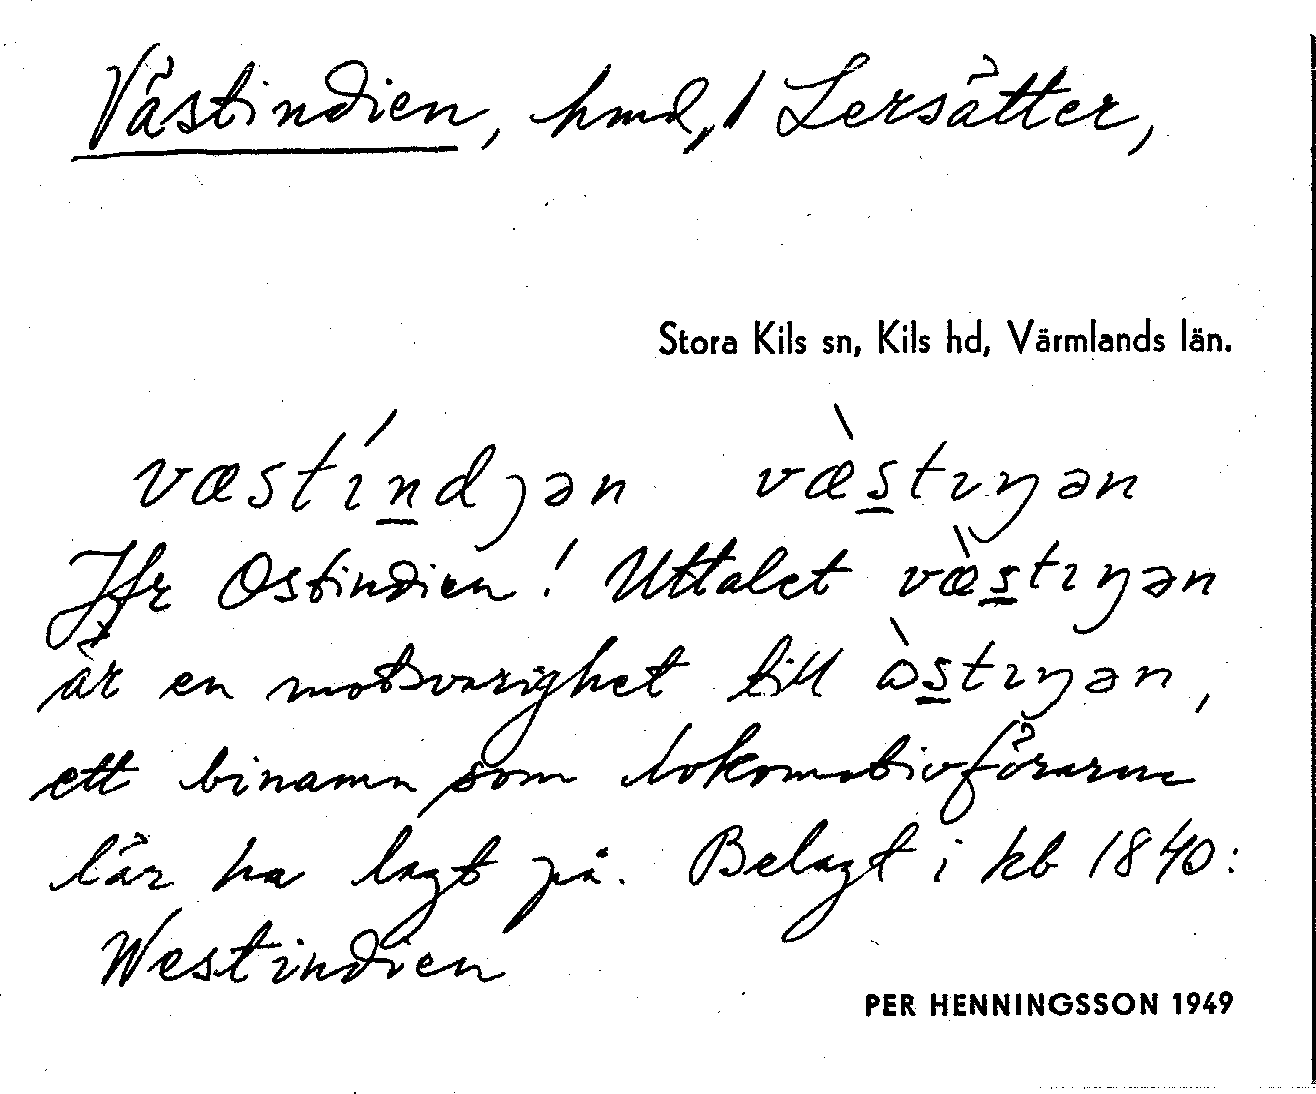 Västindien, hmd, 1 Lersätter,
Stora Kils sn, Kils hd, Värmlands län.
væstíndȷən væ̀stıŋən
Jfr Ostindien! Uttalet væ̀stıŋən
är en motsvarighet till òstıŋən,
ett binamn som lokomotivförarne
lär ha lagt på. Belagt i kb 1840:
Westindien
PER HENNINGSSON 1949